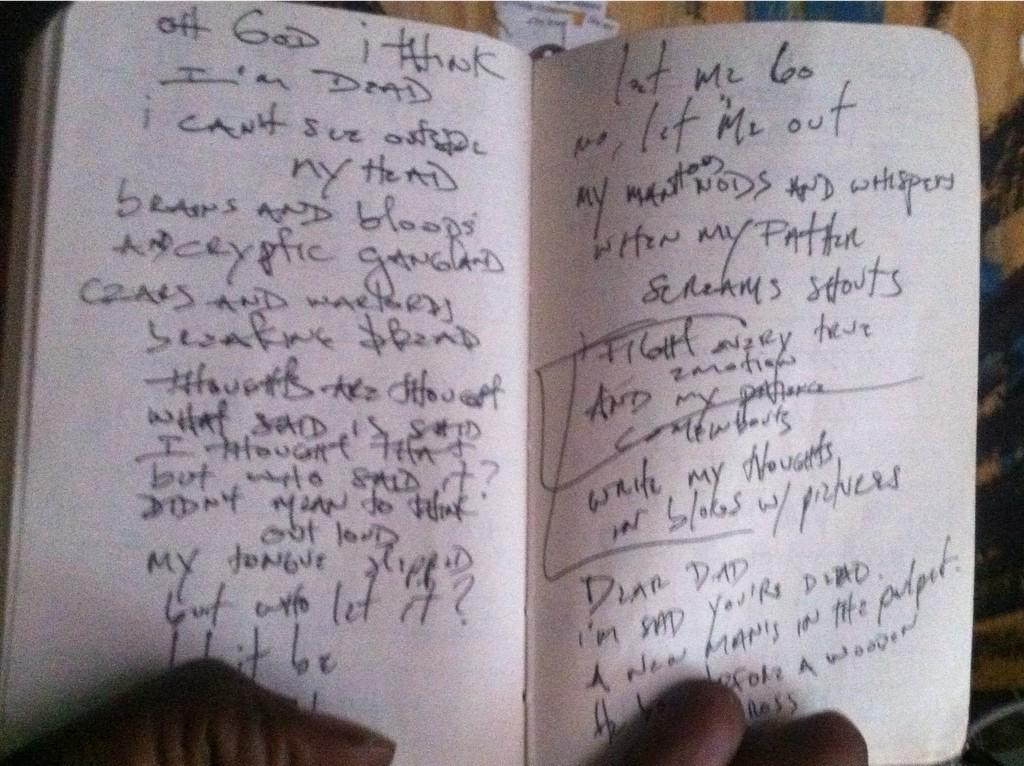 oH GOD i tHiNK
I'm DEAD
i CAN't SEE outSiDE
My HEAD
bRAiNS AND blooDS
AND CRyPtiC GANGLAND
CZARS AND WARLORDS
bREAKiNG BREAD
tHOUGHtS ARE tHOUGHt
WHAt SAiD iS SAiD
I tHOUGHt tHAt
but WHO SAiD it?
DiDN't MEAN to tHiNK
out louD
My toNGUE SliPPED
but WHO lEt it?
it bE
lEt ME Go
No, lEt ME out
My MANHOOD NODS AND WHiSPERS
WHEN My FAtHER
SCREAMS SHOUtS
i FiGHt EVERy tRUE
EMotioN
AND My PAtiENCE
WRitE My tHOUGHtS
iN w/ PiCtURES
DEAR DAD
i'm SAD YOU'RE DEAD.
A NEW MAN iS iN tHE PulPit.
A WOODEN